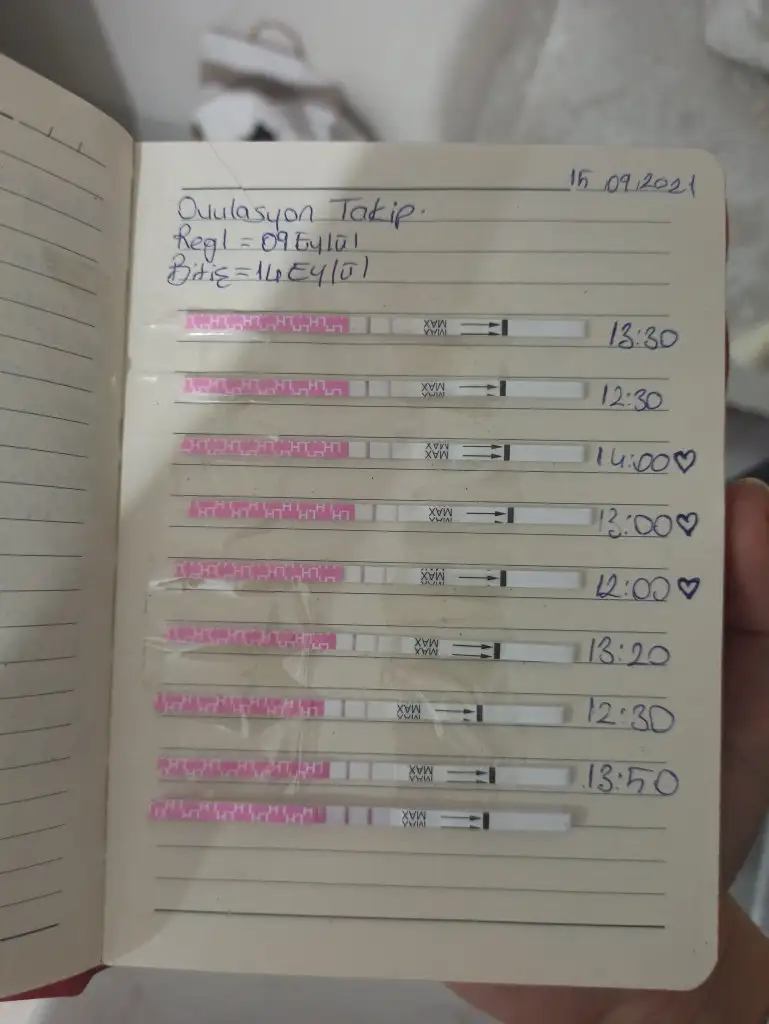 15.09.2021
Ovulasyon Takip.
Regl = 09 Eylül
Bitiş = 14 Eylül
MAX MAX 13:30
MAX MAX 12:30
MAX MAX 14:00♡
MAX MAX 13:00♡
MAX MAX 12:00♡
MAX MAX 13:20
MAX MAX 12:30
MAX MAX 13:50
MAX MAX